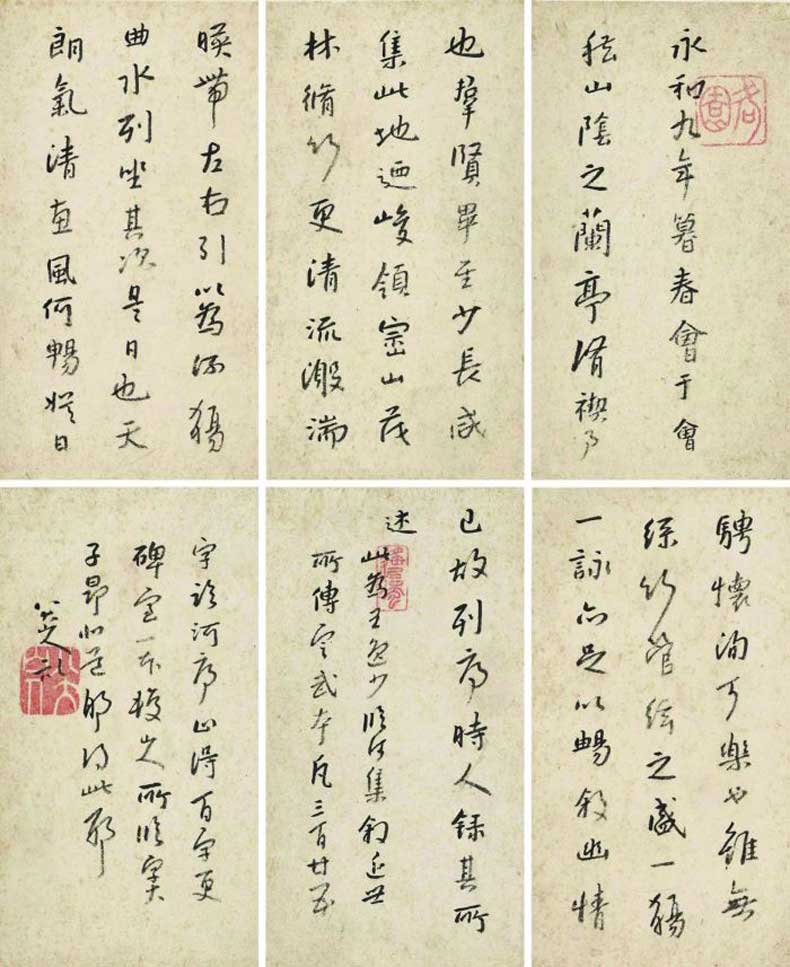 永和九年暮春會于會
嵇山陰之蘭亭脩禊事
也羣賢畢至少長咸
集此地迺峻領崇山茂
林脩竹更清流激湍
暎帶左右引以為流觴
曲水列坐其次是日也天
朗氣清惠風和暢娛目
騁懷洵可樂也雖無
絲竹管絃之盛一觴
一詠亦足以暢敘幽情
已故列序時人錄其所
述
此為王逸少臨河集敘近世
所傳定武本凡三百廿五
字 河序止得百字更
碑 一本 所臨
子昂 得此耶